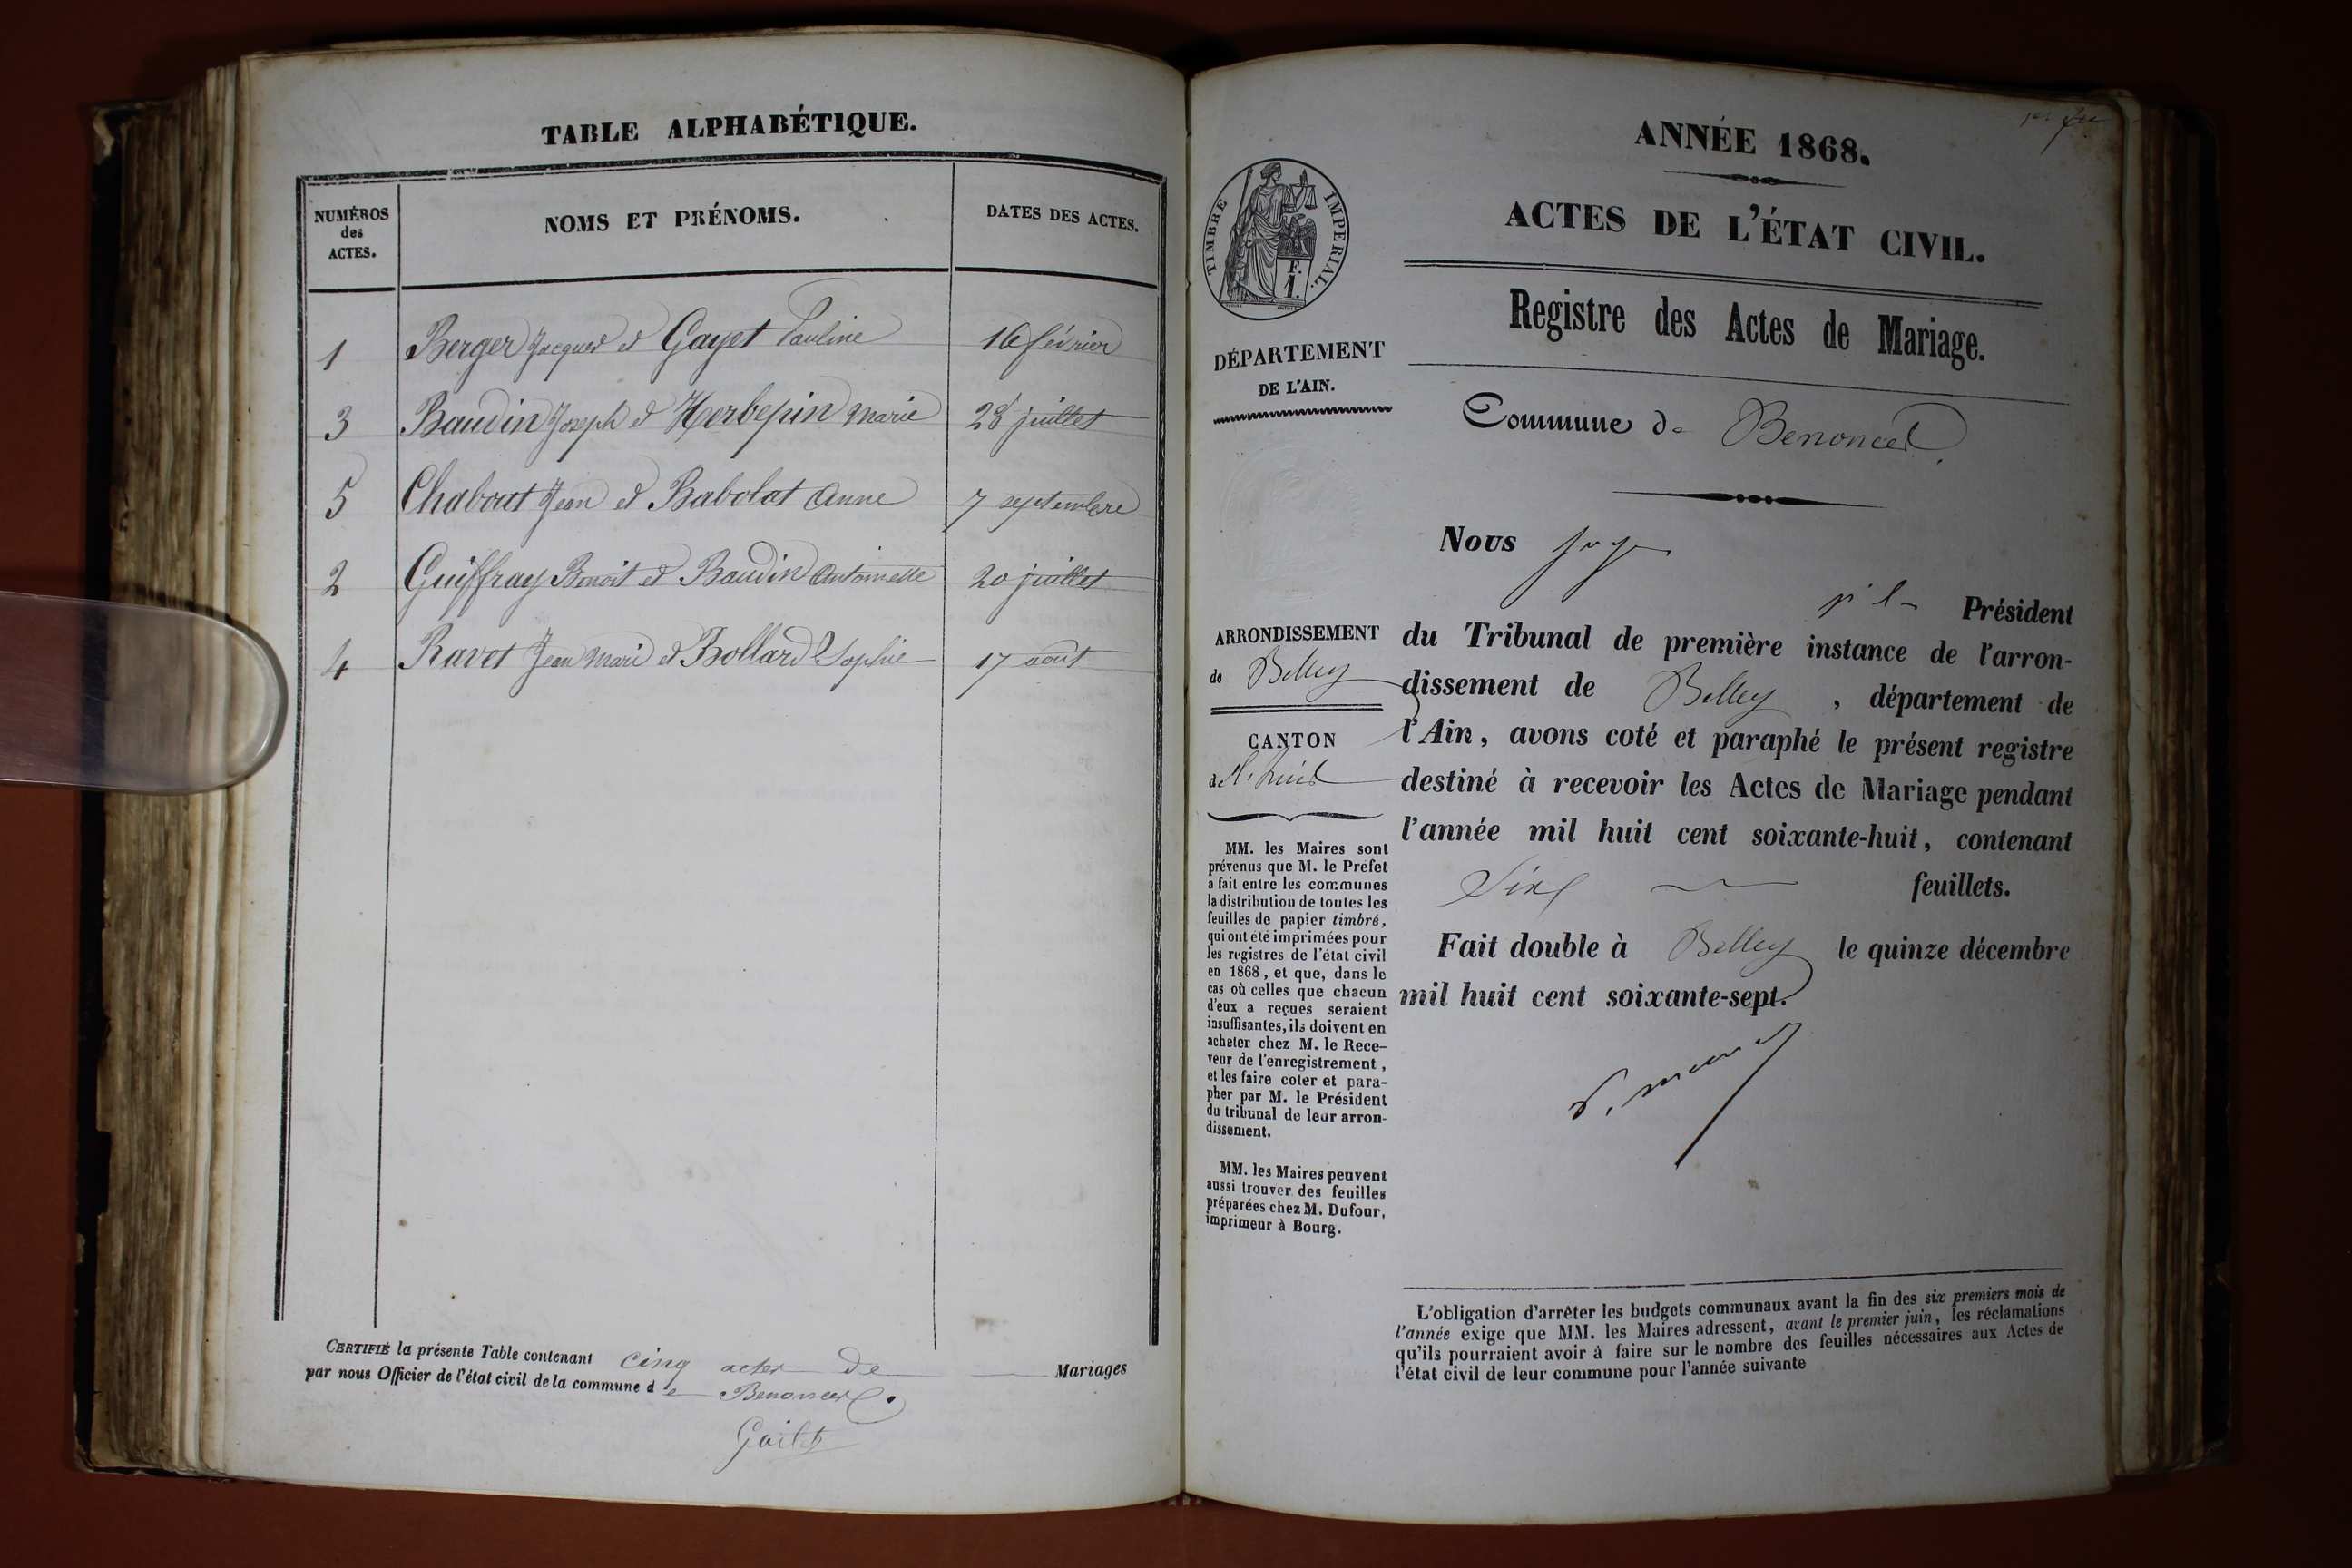 TABLE ALPHABÉTIQUE.
NUMÉROS des ACTES.
NOMS ET PRÉNOMS.
DATES DES ACTES.
1 Berger Jacques et Gayet Pauline 16 février
3 Baudin Joseph et Herbepin Marie 28 juillet
5 Chabout Jean et Babolat Anne 7 septembre
2 Guiffray Benoit et Baudin Antoinette 20 juillet
4 Ravet Jean Marie et Bollard Sophie 17 aout
CERTIFIÉ la présente Table contenant cinq actes de Mariages
par nous Officier de l'état civil de la commune de Benonces.
ANNÉE 1868.
ACTES DE L'ÉTAT CIVIL.
Registre des Actes de Mariage.
TIMBRE IMPÉRIAL.
F.
1.
DÉPARTEMENT
DE L'AIN.
Commune de Benonces
Nous juge
Président
du Tribunal de première instance de l'arron-
dissement de Belley, département de
l'Ain, avons coté et paraphé le présent registre
destiné à recevoir les Actes de Mariage pendant
l'année mil huit cent soixante-huit, contenant
Six feuillets.
Fait double à Belley le quinze décembre
mil huit cent soixante-sept.
ARRONDISSEMENT
de Belley
CANTON
MM. les Maires sont
prévenus que M. le Préfet
a fait entre les communes
la distribution de toutes les
feuilles de papier timbré,
qui ont été imprimées pour
les registres de l'état civil
en 1868, et que, dans le
cas où celles que chacun
d'eux a reçues seraient
insuffisantes, ils doivent en
acheter chez M. le Rece-
veur de l'enregistrement,
et les faire coter et para-
pher par M. le Président
du tribunal de leur arron-
dissement.
MM. les Maires peuvent
aussi trouver des feuilles
préparées chez M. Dufour,
imprimeur à Bourg.
L'obligation d'arrêter les budgets communaux avant la fin des six premiers mois de
l'année exige que MM. les Maires adressent, avant le premier juin, les réclamations
qu'ils pourraient avoir à faire sur le nombre des feuilles nécessaires aux Actes de
l'état civil de leur commune pour l'année suivante